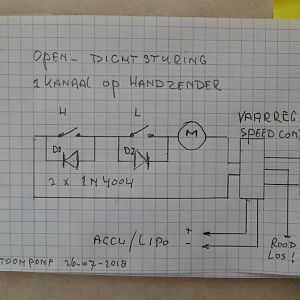 OPEN- DICHT STURING
1 KANAAL OP HANDZENDER
VAARREG
SPEED CONT
H
L
M
D1
D2
2 X 1N4004
+
-
ACCU/LIPO
ROOD
LOS!
STOOMPOMP 26-07-2018